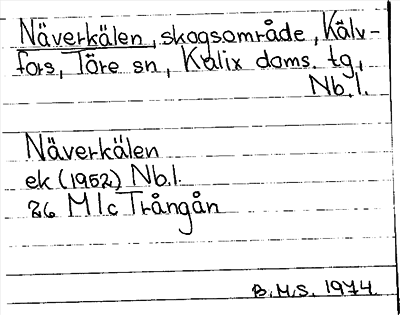 Näverkälen, skogsområde, Kälv-
fors, Töre sn, Kalix doms. tg,
Nb.l.
Näverkälen
ek (1952) Nb.l.
26 M1c Trångån
B.M.S. 1974